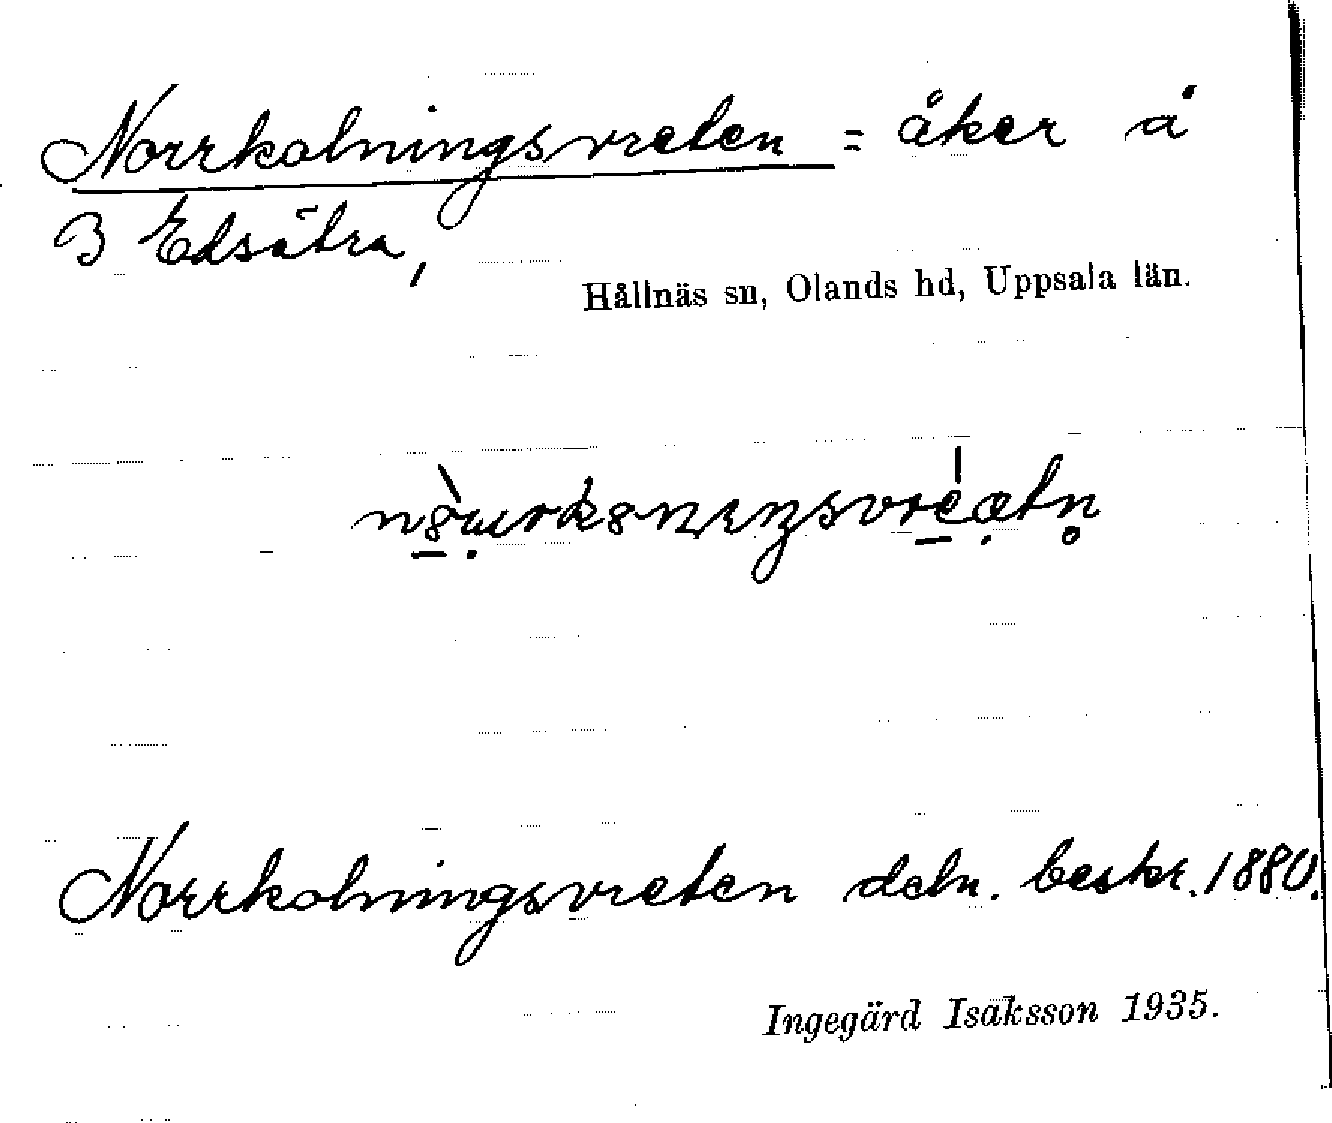 Norrkolningsvreten = åker å
3 Edsätra,
Hållnäs sn, Olands hd, Uppsala län.
Norrkolningsvreten deln. beskr. 1880.
Ingegärd Isaksson 1935.